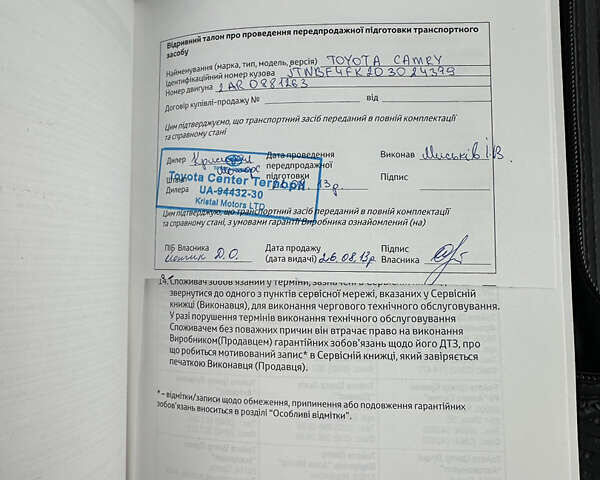 Відривний талон про проведення передпродажної підготовки транспортного
засобу
Найменування (марка, тип, модель, версія) TOYOTA CAMRY
Ідентифікаційний номер кузова JTNBF4FK203024399
Номер двигуна 2AR0981263
Договір купівлі-продажу № від
Цим підтверджуємо, що транспортний засіб переданий в повній комплектації
та справному стані
Дилер Кристал Моторс Дата проведення передпродажної підготовки 13р. Виконав Миськів І.В.
Штамп Дилера Підпис
Toyota Center Тернопіл
UA-94432-30
Kristal Motors LTD
Цим підтверджую, що транспортний засіб переданий в повній комплектації
та справному стані, з умовами гарантії Виробника ознайомлений (на)
ПІБ Власника Д.О. Дата продажу (дата видачі) 26.08.13р Підпис Власника
14. Споживач зобов'язаний у терміни, зазначені в Сервісній книжці,
звернутися до одного з пунктів сервісної мережі, вказаних у Сервісній
книжці (Виконавця), для виконання чергового технічного обслуговування.
У разі порушення термінів виконання технічного обслуговування
Споживачем без поважних причин він втрачає право на виконання
Виробником(Продавцем) гарантійних зобов'язань щодо його ДТЗ, про
що робиться мотивований запис* в Сервісній книжці, який завіряється
печаткою Виконавця (Продавця).
* – відмітки/записи щодо обмеження, припинення або подовження гарантійних
зобов'язань вноситься в розділі "Особливі відмітки".